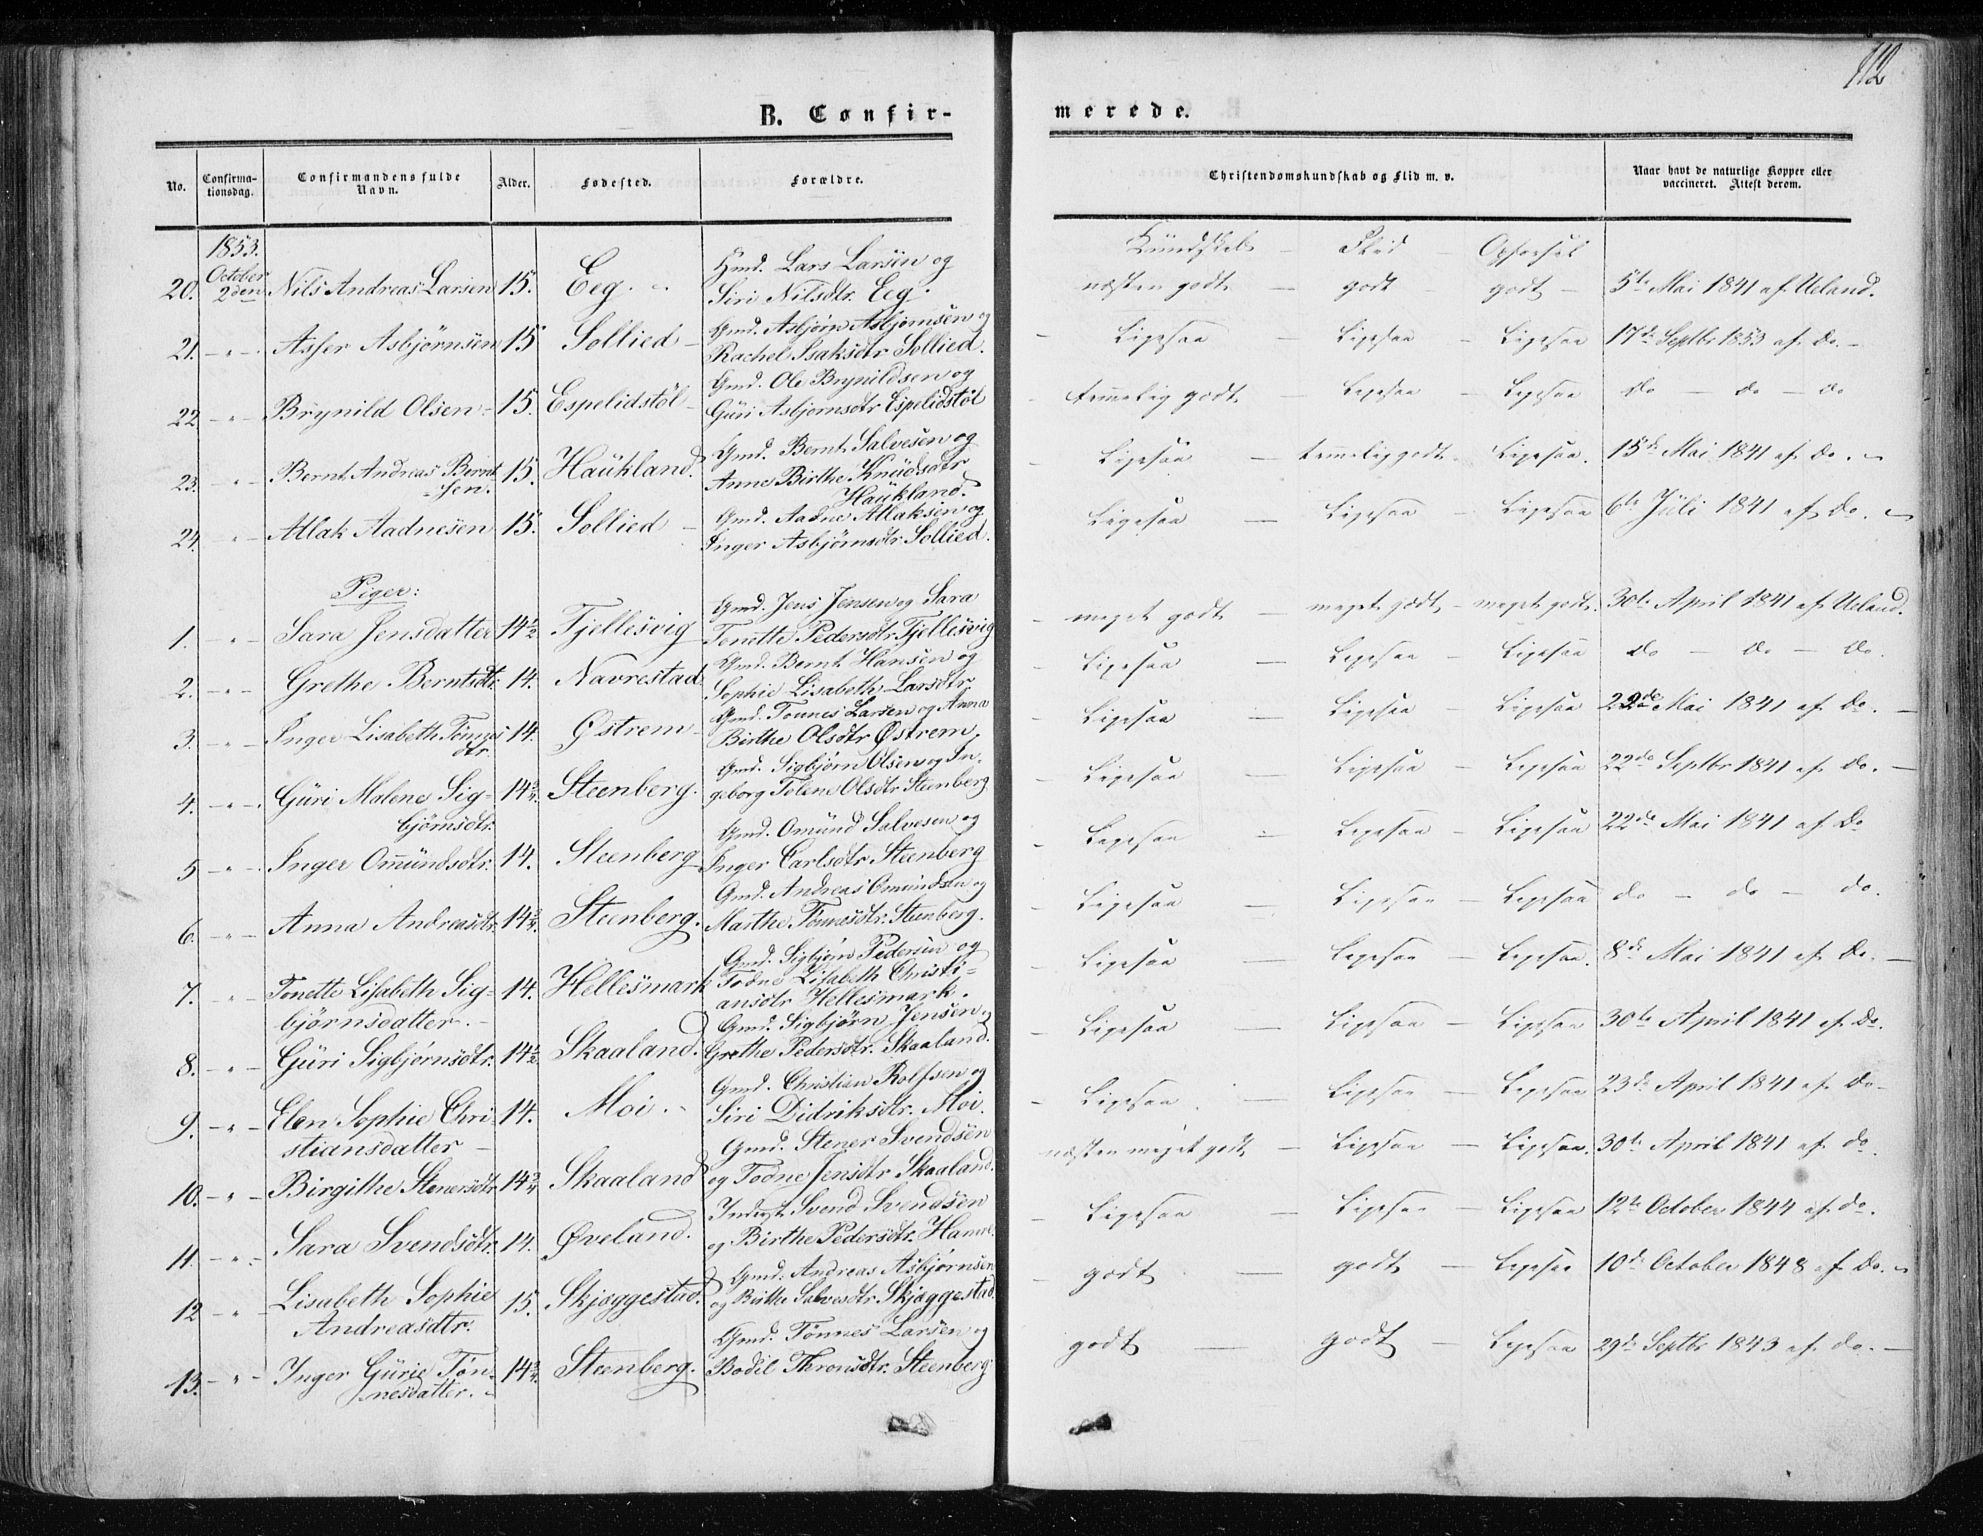 112
B. Confir-
merede.
No.
Confirma-
tionsdag.
Confirmandens fulde
Navn.
Alder.
Fødested.
Forældre.
Christendomskundskab og Flid m. v.
Naar havt de naturlige Kopper eller
vaccineret. Attest derom.
1853.
October
2den
Kundskab - Flid - Opførsel
20. Nils Andreas Larsen 15. Eeg. Gmd. Lars Larsen og
Siri Nilsdtr. Eeg. næsten godt - godt - godt - 5te Mai 1841 af Ueland.
21. - " - Asser Asbjørnsen 15 Sollied - Gmd. Asbjørn Asbjørnsen og
Rachel Isaksdtr Sollied. - Ligesaa - Ligesaa - Ligesaa 17de Septbr 1853 af do. -
22 - " - Brynild Olsen - 15. Espelidstöl - Gmd. Ole Brynildsen og
Güri Asbjørnsdtr Espelidstöl - temmelig godt - Ligesaa - Ligesaa do - do - do
23. - " - Bernt Andreas Bernt
-sen. 15. Haükland. Gmd. Bernt Salvesen og
Anne Birthe Knüdsdtr
Haükland. - Ligesaa - temmelig godt - Ligesaa. 15de Mai 1841 af do. -
24. - " - Atlak Aadnesen 15. Sollied - Gmd. Aadne Atlaksen og
Inger Asbjørnsdtr Sollied. Ligesaa - Ligesaa - Ligesaa 6te Jüli 1841 af do. -
Piger:
1. " - Sara Jensdatter 14½ Fjellesvig Gmd. Jens Jensen og Sara
Tonette Pedersdtr Fjellesvig - meget godt - meget godt - meget godt. 30te April 1841 af Ueland.
2. - " - Grethe Berntsdtr 14. Navrestad. Gmd. Bernt Hansen og
Sophie Lisabeth Larsdtr - Ligesaa - Ligesaa - Ligesaa do - do - do.
3. - " - Inger Lisabeth Tønnes
dtr. 14. Østrem - Gmd. Tonnes Larsen og Anna
Birthe Olsdtr Østrem. - Ligesaa - Ligesaa - Ligesaa 22de Mai 1841 af do. -
4. - " - Güri Malene Sig-
bjørnsdtr. 14¾. Steenberg. Gmd. Sigbjørn Olsen og In-
geborg Tolene Olsdtr Steenberg - Ligesaa - Ligesaa - Ligesaa 22de Septbr 1841 af do. -
5 - " - Inger Omündsdtr. 14. Steenberg - Gmd. Omünd Salvesen og
Inger Carlsdtr Steenberg - Ligesaa - Ligesaa - Ligesaa 22de Mai 1841 af do
6. - " - Anna Andreasdtr. 14¾. Steenberg. Gmd. Andreas Omündsen og
Marthe Tønnesdtr. Steenberg. - Ligesaa - Ligesaa - Ligesaa do - do - do.
7. - " Tonette Lisabeth Sig-
bjørnsdatter. - 14. Hellesmark Gmd. Sigbjørn Pedersen og
Todne Lisabeth Christi-
ansdtr Hellesmark. - Ligesaa - Ligesaa - Ligesaa. 8de Mai 1841 af do. -
8. - " - Güri Sigbjørnsdtr. 14½ Skaaland. Gmd. Sigbjörn Jensen og
Grethe Pedersdtr. Skaaland. - Ligesaa - Ligesaa - Ligesaa 30te April 1841 af do.
9. - " - Elen Sophie Chri-
stiansdatter - 14. Moi. - Gmd. Christian Rolfsen og
Siri Didriksdtr. Moi. - Ligesaa. - Ligesaa - Ligesaa 23de April 1841 af do -
10. - " - Birgithe Stenersdtr 14¾ Skaaland Gmd. Stener Svendsen
og Todne Jensdtr Skaaland. næsten meget godt - Ligesaa - Ligesaa. 30te April 1841 af do.
11. - " - Sara Svendsdtr. 14. Øveland. Inderst Svend Svendsen
og Birthe Pedersdtr. Hamre. - Ligesaa - Ligesaa - Ligesaa 12te October 1844 af do.
12 - " - Lisabeth Sophie
Andreasdtr. 15. Skjæggestad. Gmd. Andreas Asbjørnsen
og Birthe Salvesdtr. Skjæggestad. - godt - godt - Ligesaa 10de October 1848 af do. -
13. - " - Inger Gürie Tøn-
nesdatter. - 14¾. Steenberg. Gmd. Tönnes Larsen og
Bodil Thronsdtr. Steenberg. godt - godt - Ligesaa 29de Septbr 1843 af do. -